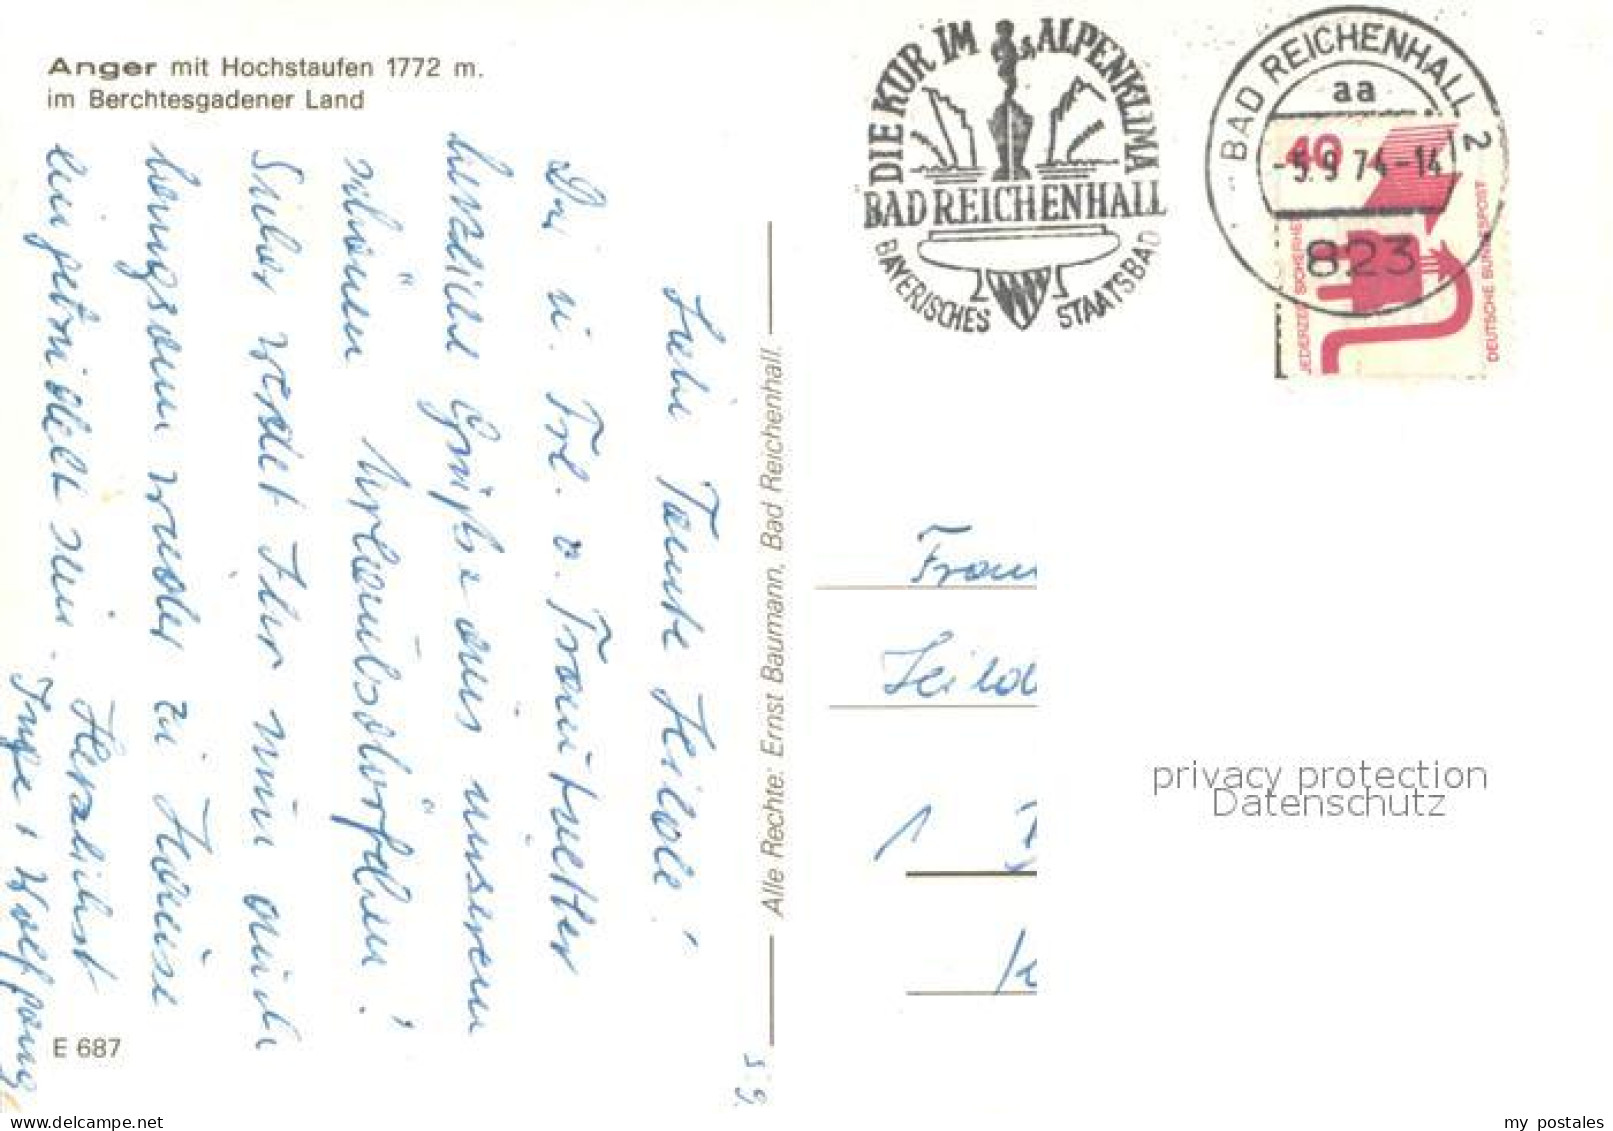 Anger mit Hochstaufen 1772 m.
im Berchtesgadener Land
5.9.
Liebe Tante Heilde!
Dir u. Frl. v.
herzliche Grüße aus unserem
schönen Urlaubsdörfchen!
Sicher werdet Ihr nun auch
langsam wieder zu Hause
eingetrudelt sein. Herzlichst
Inge & Wolfgang
E 687
Alle Rechte: Ernst Baumann, Bad Reichenhall.
DIE KUR IM ALPENKLIMA
BAD REICHENHALL
BAYERISCHES STAATSBAD
BAD REICHENHALL 2
aa
-5.9 74-14
823
40
JEDERZEIT SICHERHEIT
DEUTSCHE BUNDESPOST
Frau
Heild
1
K
privacy protection
Datenschutz
delcampe.net
my_postales